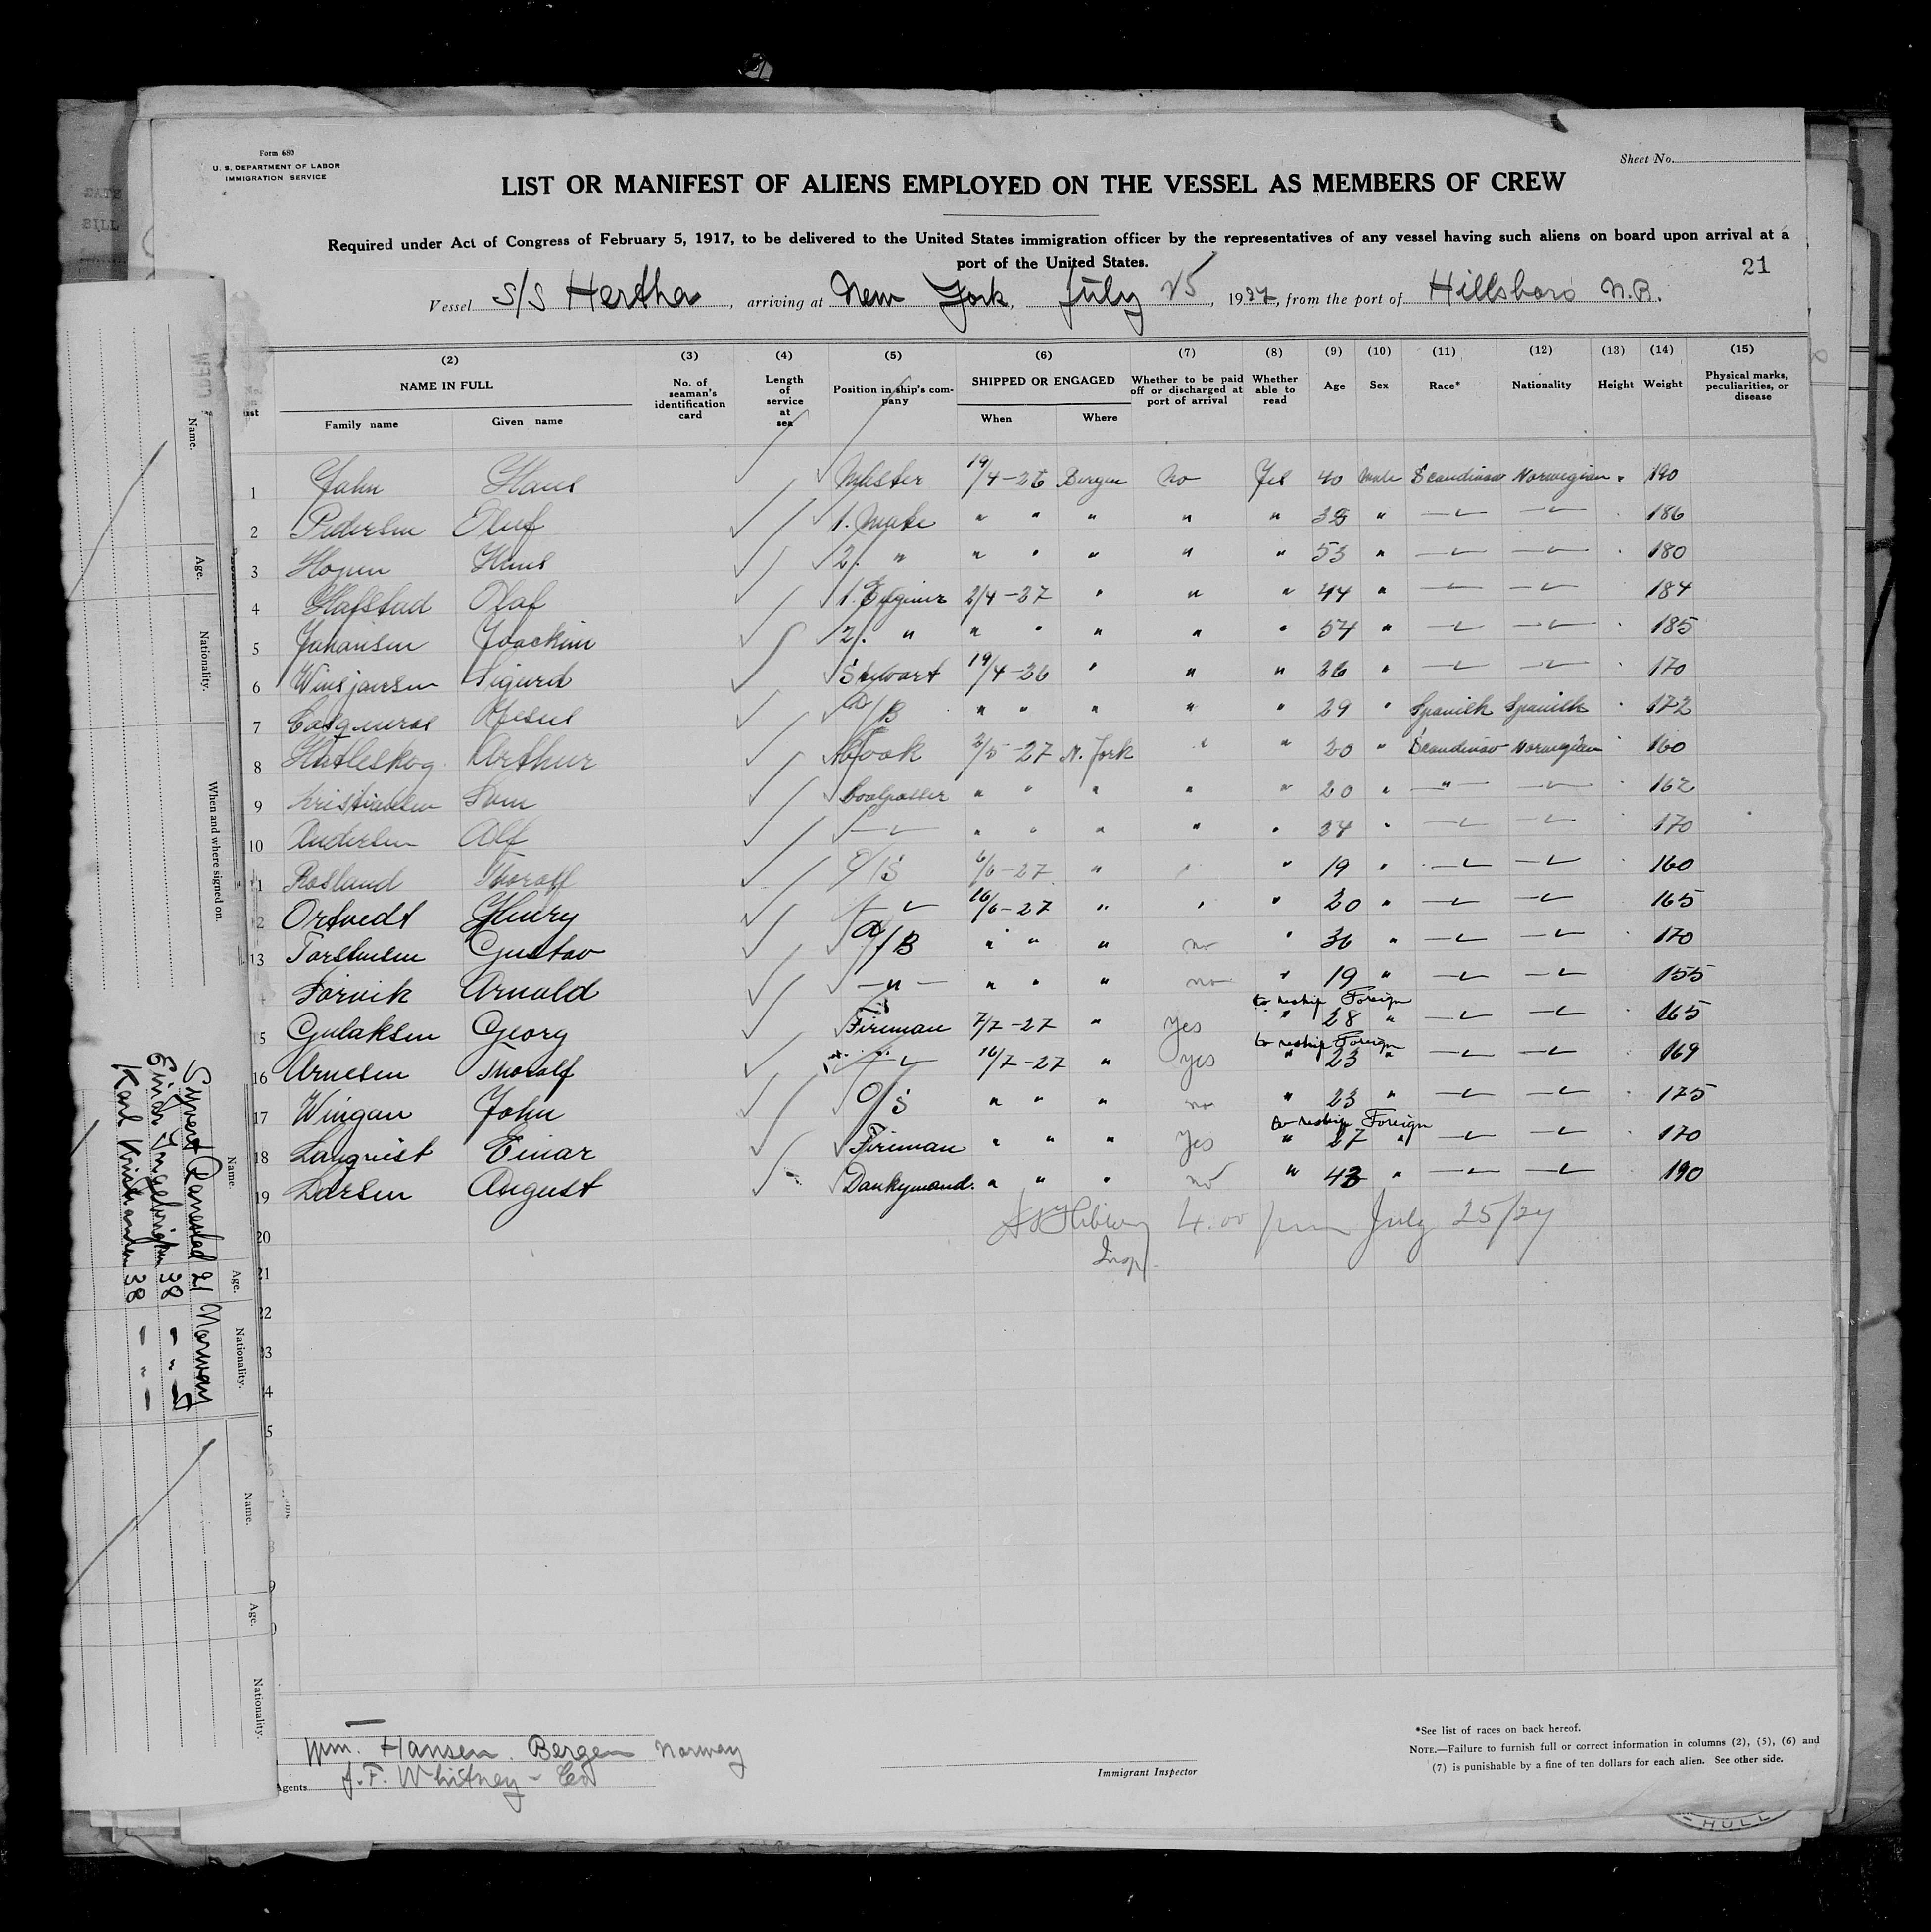 Form 680
U. S. DEPARTMENT OF LABOR
IMMIGRATION SERVICE
Sheet No.
LIST OR MANIFEST OF ALIENS EMPLOYED ON THE VESSEL AS MEMBERS OF CREW
Required under Act of Congress of February 5, 1917, to be delivered to the United States immigration officer by the representatives of any vessel having such aliens on board upon arrival at a
port of the United States.
21
Vessel S/S Hertha, arriving at New York, July 25, 1927, from the port of Hillsboro N.B.
(2) (3) (4) (5) (6) (7) (8) (9) (10) (11) (12) (13) (14) (15)
NAME IN FULL No. of seaman's identification card Length of service at sea Position in ship's company SHIPPED OR ENGAGED Whether to be paid off or discharged at port of arrival Whether able to read Age Sex Race* Nationality Height Weight Physical marks, peculiarities, or disease
Family name Given name When Where
1 Jahn Hans Master 19/4-26 Bergen No Yes 40 Male Scandinav Norwegian 190
2 Pedersen Oluf 1. Mate " " " " " 38 " 186
3 Hopen Hans 2. " " " " " " 53 " 180
4 Hafstad Olaf 1. Engineer 2/4-27 " " " 44 " 184
5 Johansen Joackim 2. " " " " " " 54 " 185
6 Sigurd Stewart 19/4-26 " " " 26 " 170
7 Jesus " " " " " 29 " Spanish Spanish 172
8 Hatleskog Arthur Cook -27 N. York " " 20 " Scandinav Norwegian 160
9 Kristiansen Coalpasser " " " " " 20 " " 162
10 Andersen Alf " " " " " 24 " 170
11 Rosland Thoralf 6/6-27 " " 19 " 160
12 Ortvedt Henry 16/6-27 " " 20 " 165
13 Torstensen Gustav a/B " " " no " 36 " 170
Forvik Arnold — " — " " " no " 19 " 155
to reship Foreign
5 Gulaksen Georg Fireman 7/7-27 " yes " 28 " 165
to reship Foreign
16 Arnesen Thoralf 16/7-27 " yes " 23 " 169
17 Wingan John O/S " " " no " 23 " 175
to reship Foreign
18 Lanqvist Einar Fireman " " " yes " 27 " 170
19 Larsen August Dankymand. " " " no " 43 " 190
20 4.00 pm July 25/27
Insp
21
22
Name. Age. Nationality. When and where signed on.
Name. Age. Nationality.
Sivert 21 Norway
Einar Ingebrigtsen 38 – " –
Karl Kristiansen 38 – " –
Name. Age. Nationality.
Wm. Hansen. Bergen Norway
Agents J. F. Whitney & Co
Immigrant Inspector
*See list of races on back hereof.
NOTE.—Failure to furnish full or correct information in columns (2), (5), (6) and
(7) is punishable by a fine of ten dollars for each alien. See other side.